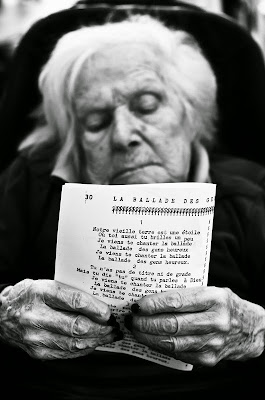 30 LA BALLADE DES GE
1
Notre vieille terre est une étoile
Où toi aussi tu brilles un peu
Je viens te chanter la ballade
La ballade des gens heureux.
Je viens te chanter la ballade
La ballade des gens heureux
2
Tu n'as pas de titre ni de grade
Mais tu dis "tu" quand tu parles à Dieu
La ballade
des gens heureux